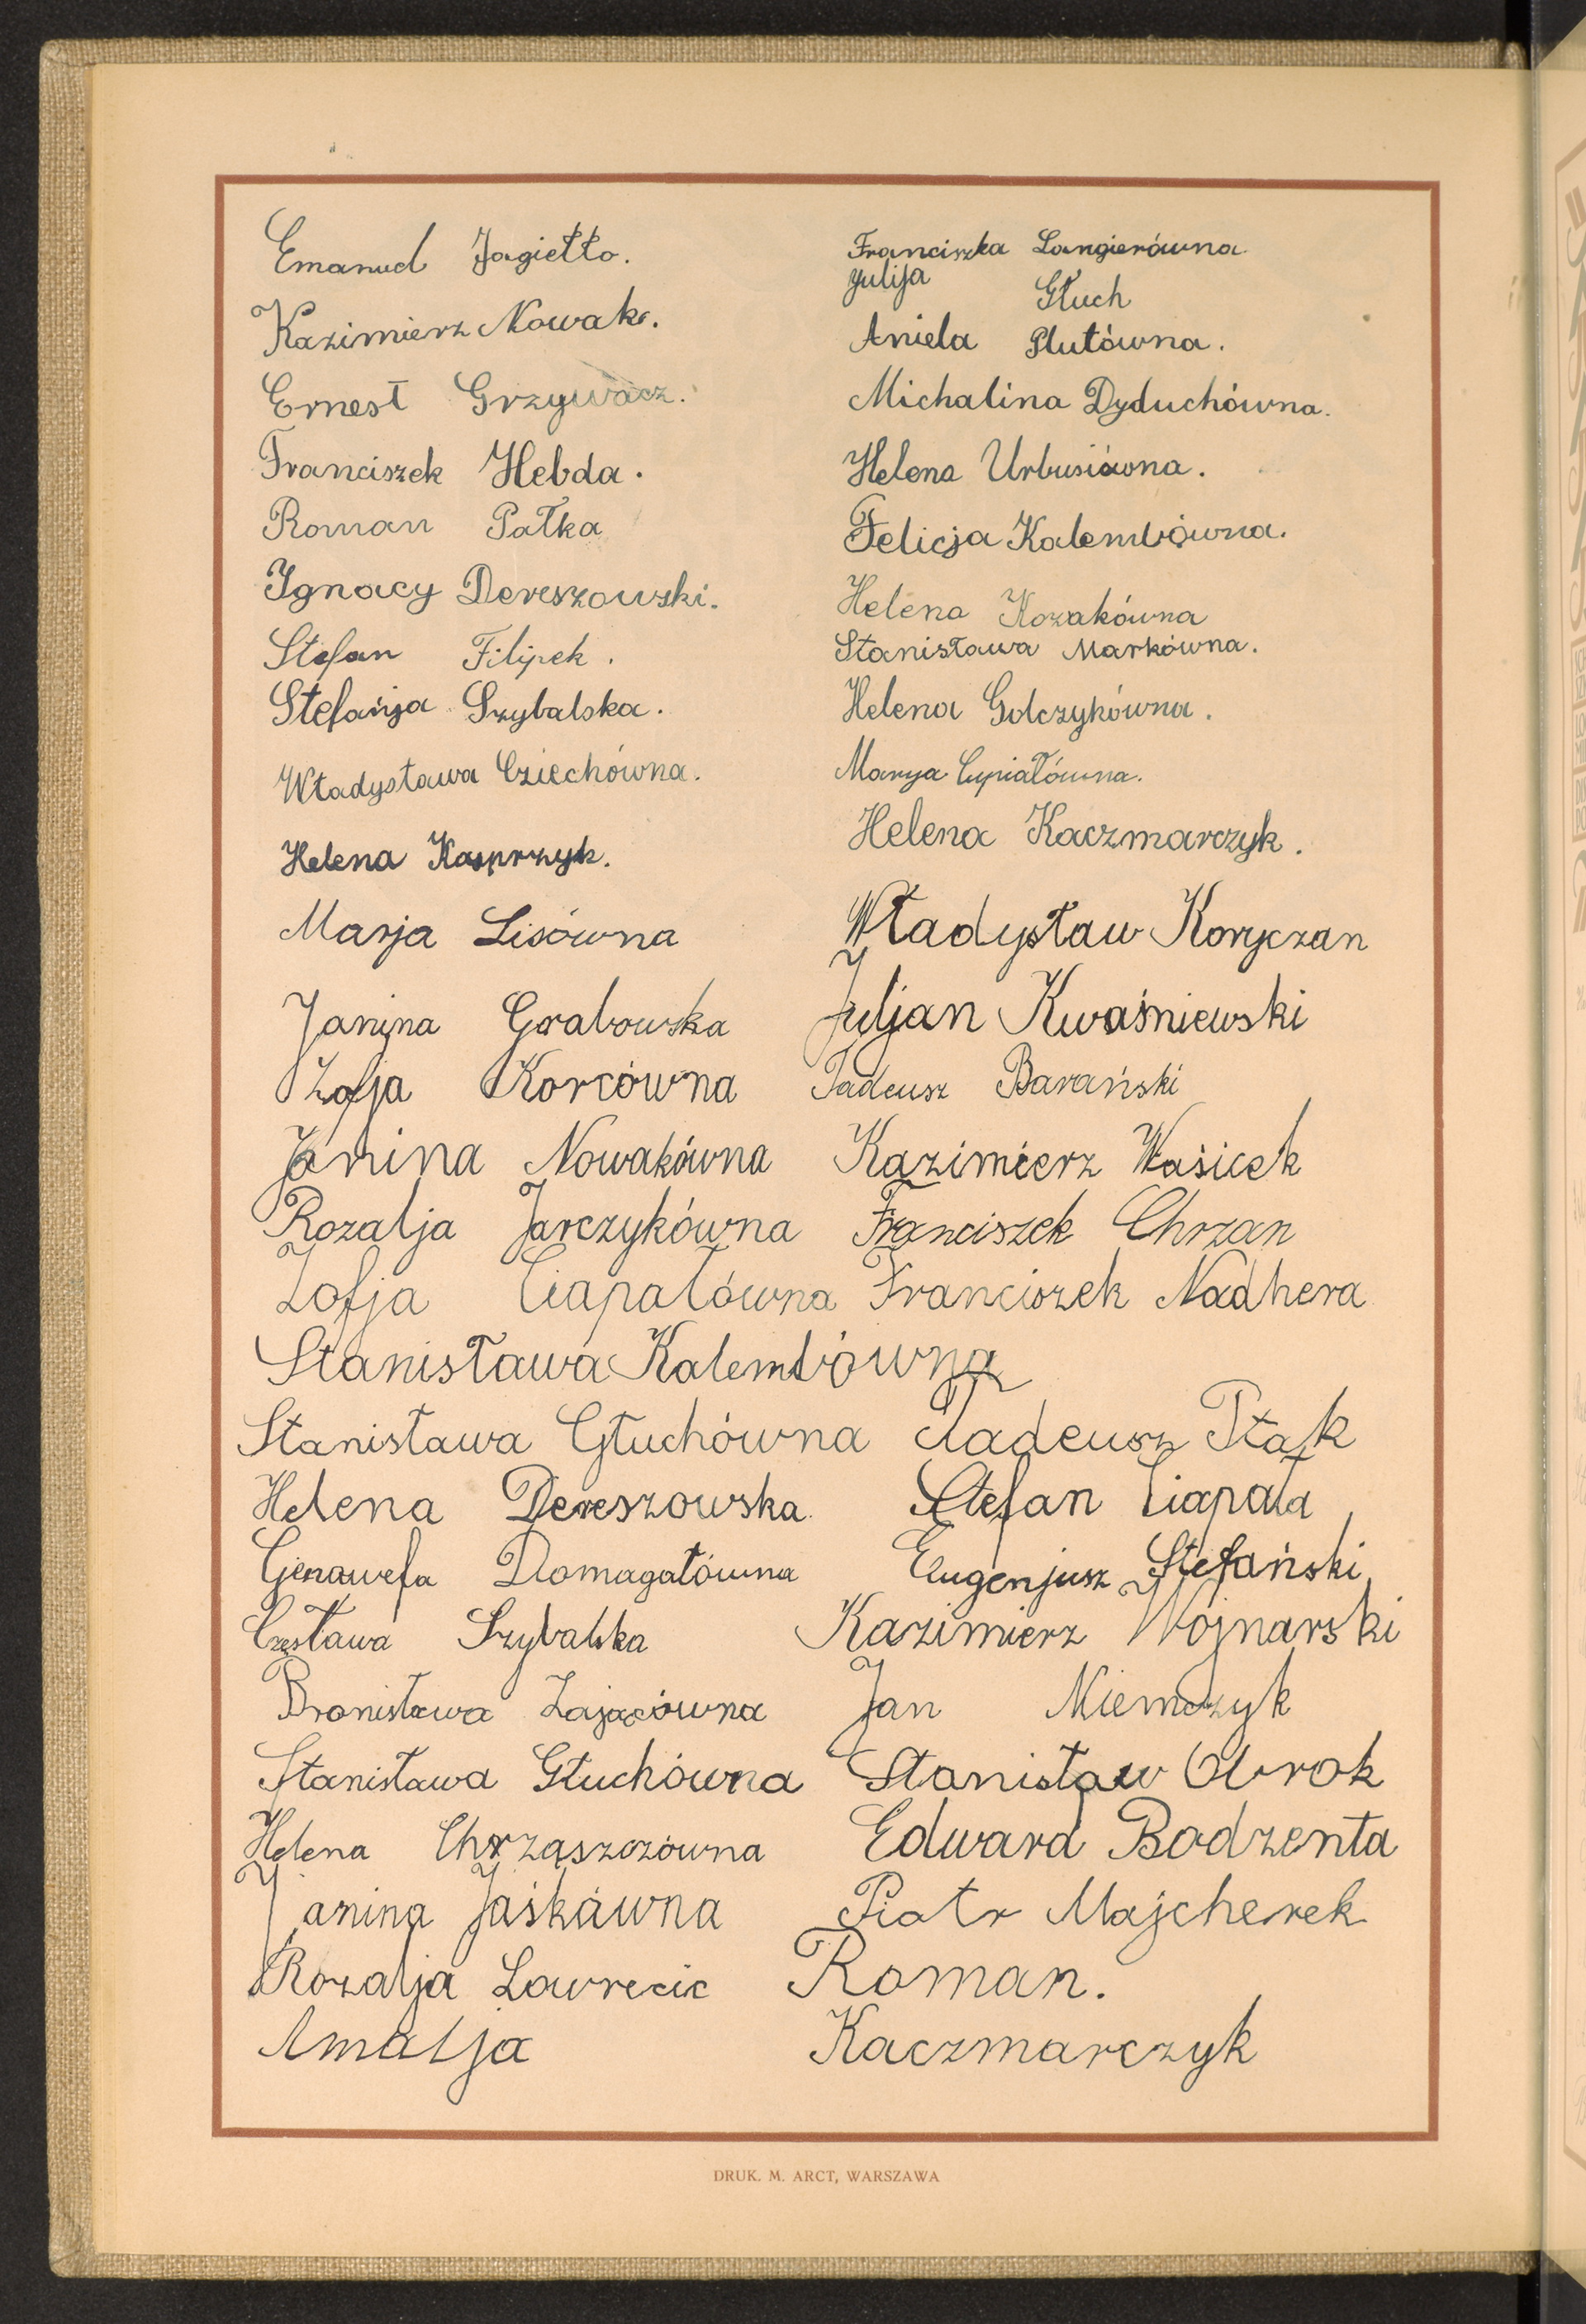 Emanuel Jagiełło.
Kazimierz Nowak.
Ernest Grzywacz.
Franciszek Hebda.
Roman Pałka
Ignacy Dereszowski.
Stefan Filipek.
Stefanja Szybalska.
Władysława Cziechówna.
Helena Kasprzyk.
Marja Lisówna
Janina Grabowska
Zofja Korcówna
Janina Nowakówna
Rozalja Jarczykówna
Zofja Ciapałówna
Stanisława Kalembówna
Stanisława Głuchówna
Helena Dereszowska
Genowefa Domagałówna
Czesława Szybalska
Bronisława Zającówna
Stanisława Głuchówna
Helena Chrząszczówna
Janina Jaśkówna
Rozalja Lawrecic
Amalja
Franciszka Langierówna
Julija Głuch
Aniela Plutówna.
Michalina Dyduchówna.
Helena Urbusiówna.
Felicja Kalembówna.
Helena Kozakówna
Stanisława Markówna.
Helena Golczykówna.
Marya Cupiałówna.
Helena Kaczmarczyk.
Władysław Koryczan
Juljan Kwaśniewski
Tadeusz Barański
Kazimierz Wasicek
Franciszek Chrzan
Franciszek Nadhera
Tadeusz Ptak
Stefan Ciapała
Eugenjusz Stefański
Kazimierz Wójnarski
Jan Niemczyk
Stanisław Obrok
Edward Bodzenta
Piotr Majcherek
Roman.
Kaczmarczyk
DRUK. M. ARCT, WARSZAWA